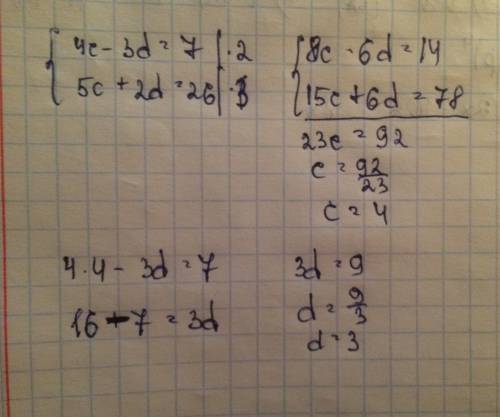 4c - 3d = 7 | ·2
5c + 2d = 26 | ·3
8c - 6d = 14
15c + 6d = 78
23c = 92
c = 92/23
c = 4
4·4 - 3d = 7
16 - 7 = 3d
3d = 9
d = 9/3
d = 3